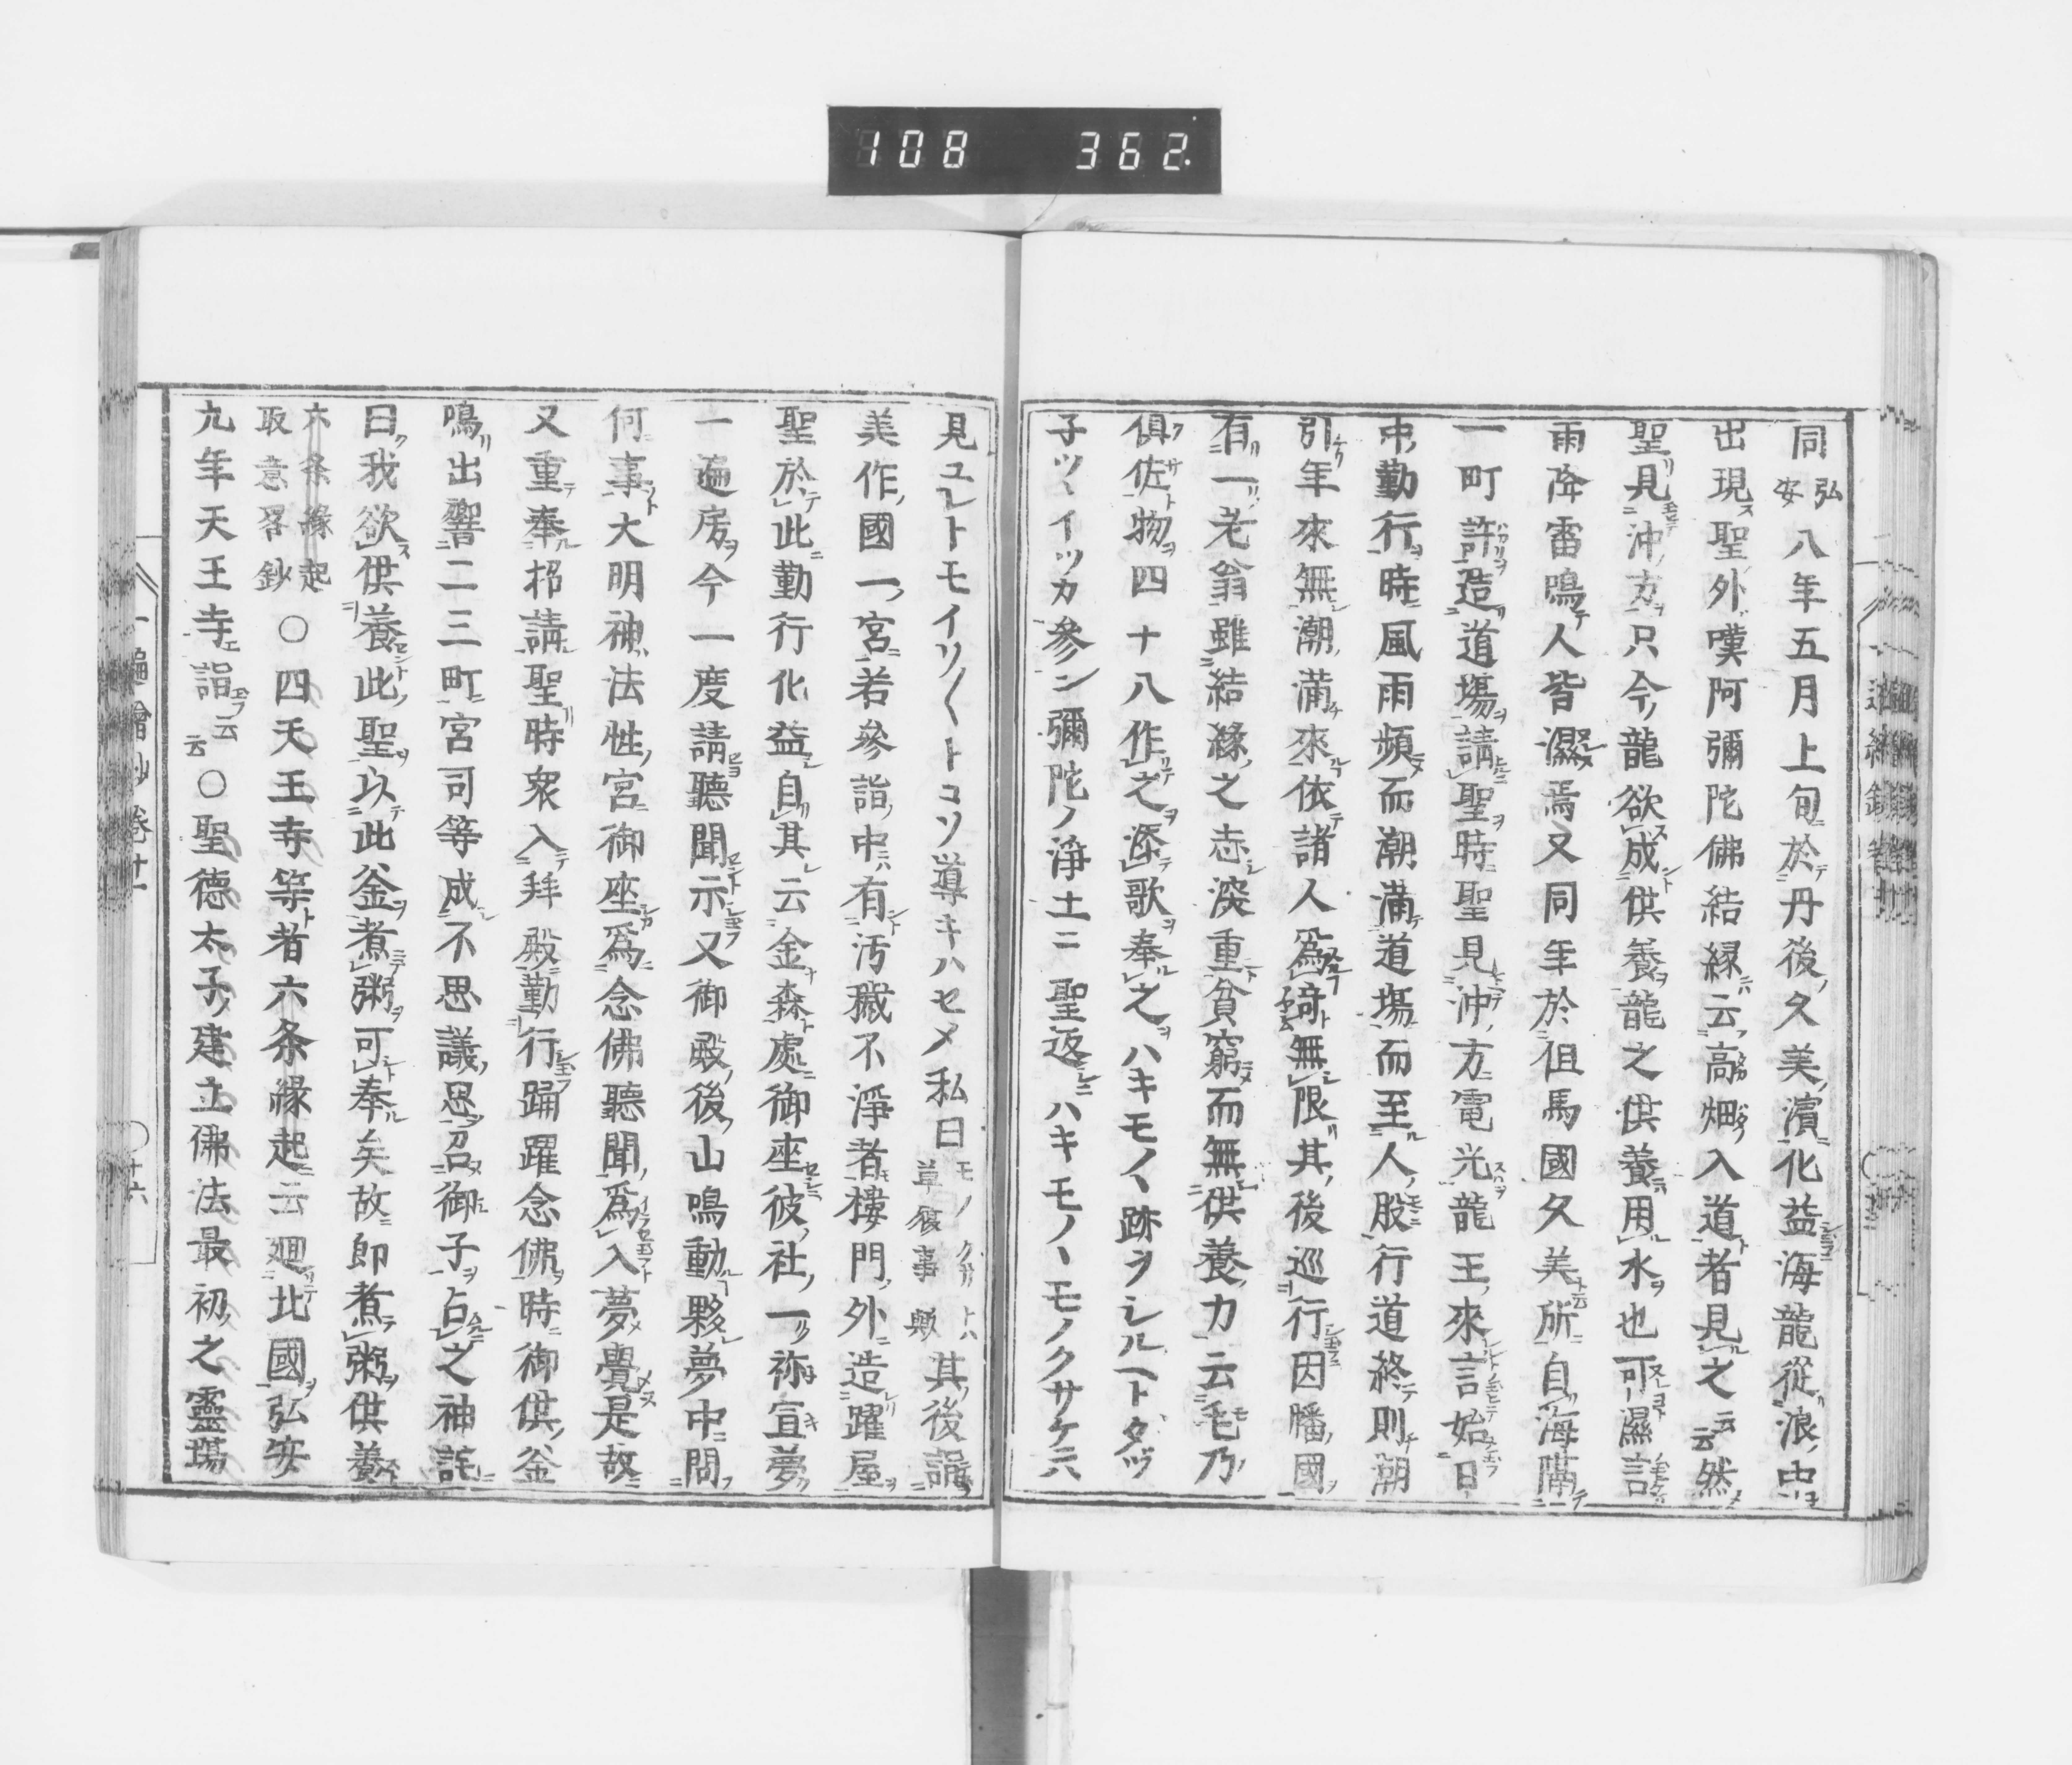 108 362
同弘安八年五月上旬於丹後久美濱化益海龍從浪中
出現聖外嘆阿彌陀佛結縁云高畑入道者見之云云然
聖見沖方只今龍欲成供養龍之供養用水也可濕言
雨降雷鳴人皆濕焉又同年於但馬國久美所自海隔
一町許造道場請聖時聖見沖方電光龍王來言始日
中勤行時風雨頻而潮滿道場而至人股行道終則潮
引年來無潮滿來依諸人爲奇無限其後巡行因幡國
有一老翁雖結縁之志深重貧窮而無供養力云毛乃
俱佐物四十八作之添歌奉之ハキモノヽ跡ヲシルヘトタツ
子ツヽイツカ參ン彌陀ノ淨土ニ 聖返ハキモノヽモノクサケニハ
見ユレトモイソ〱トコソ導キハセメ私曰モノクサトハ草履事歟其後詣
美作國一宮若參詣中有汚穢不淨者樓門外造躍屋
聖於此勤行化益自其云金森處御座彼社一祢宜夢
一遍房今一度請聽聞示又御殿後山鳴動夥夢中問
何事大明神法性宮御座爲念佛聽聞爲入夢覺是故
又重奉招請聖時衆入拜殿勤行踊躍念佛時御供釜
鳴出響二三町宮司等成不思議思召御子占之神託
曰我欲供養此聖以此釜煮粥可奉矣故即煮粥供養
六条縁起取意畧鈔○四天王寺等者六条縁起云廻北國弘安
九年天王寺詣云云○聖德太子建立佛法最初之靈塲
一遍繪鈔卷十一
十六